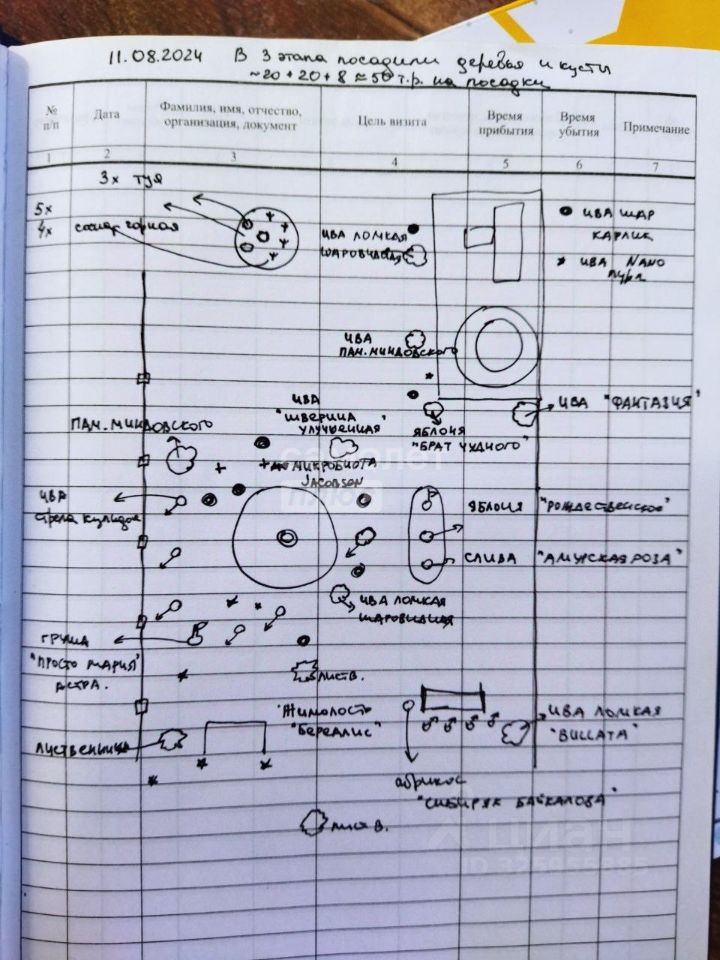 11.08.2024 В 3 этапа посадили деревья и кусты
~20+20+8 ≈ 50 т.р. на посадки
№ п/п
Дата
Фамилия, имя, отчество, организация, документ
Цель визита
Время прибытия
Время убытия
Примечание
1 2 3 4 5 6 7
3х туя
5х
4х сосна горная
ива ломкая
шаровидная
ива шар
карлик
ива нано
пурп
ива
пам. миндовского
ива "фантазия"
яблоня
"брат чудного"
ива
"шверина
улучшенная"
пам. миндовского
микробиота
Jacobson
самолет
плюс
ива
стрела купидона
яблоня "рождественское"
слива "амурская роза"
ива ломкая
шаровидная
груша
"просто мария"
астра.
листв.
жимолость
"бореалис"
ива ломкая
"Bullata"
лиственница
абрикос
"сибиряк байкалова"
листв.
циан